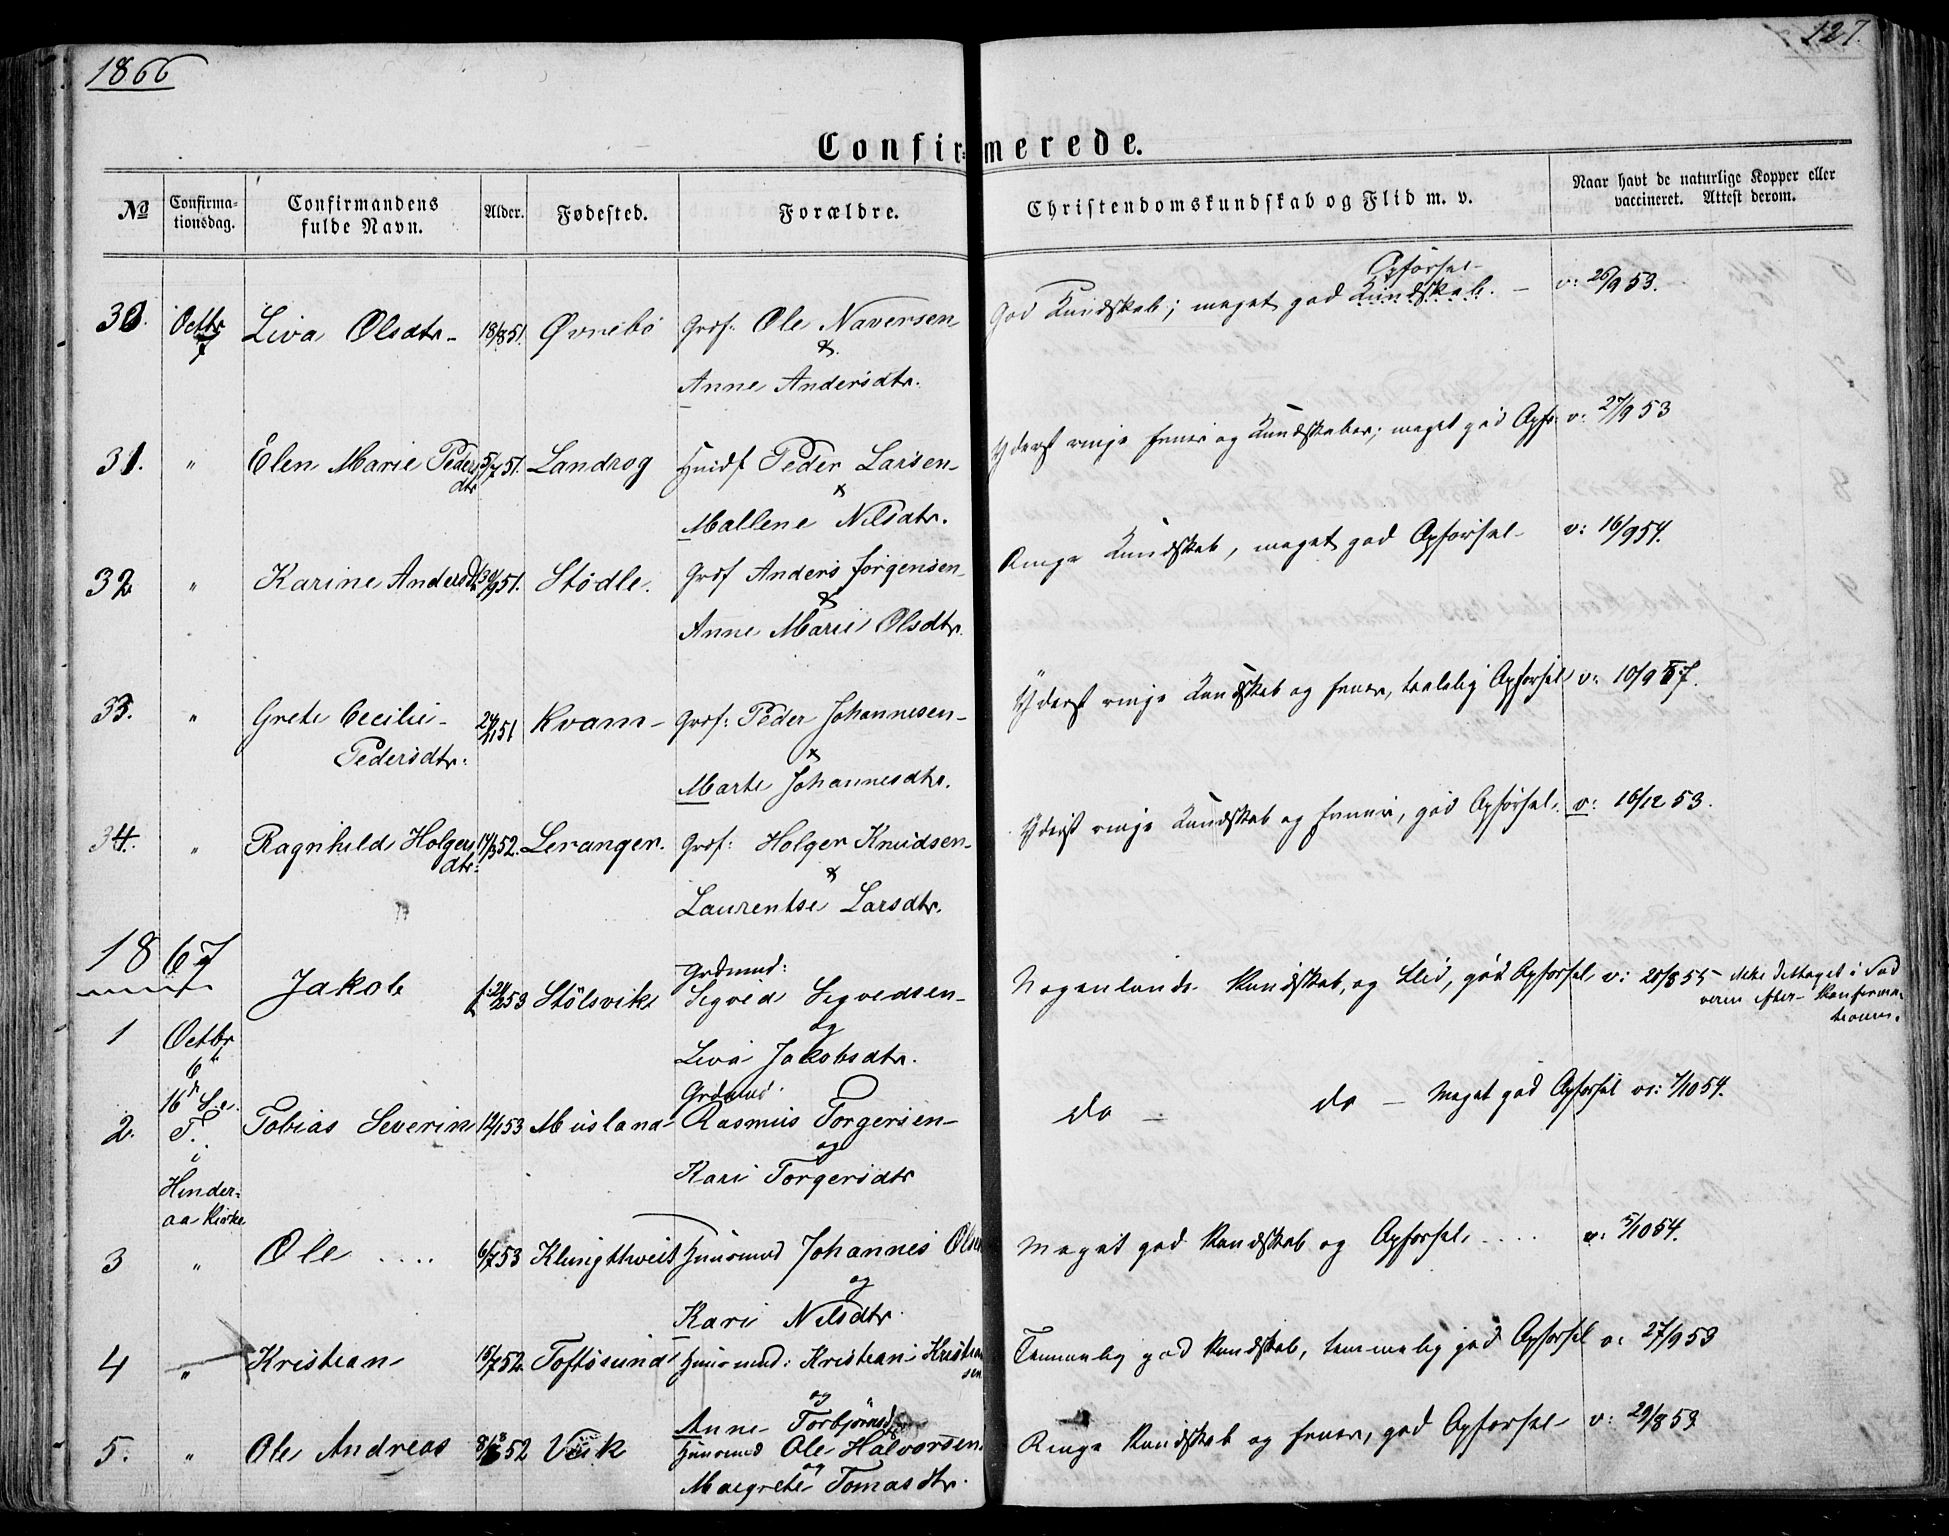 1866
127.
Confirmerede.
No
Confirma-
tionsdag.
Confirmandens
fulde Navn.
Alder.
Fødested.
Forældre.
Christendomskundskab og Flid m. v.
Naar havt de naturlige Kopper eller
vaccineret. Attest derom.
30. Octbr 7 Liva Olsdtr 18/8 51. Øvrebö Grdf: Ole Naversen
&
Anne Andersdtr.
Opförsel
God Kundskab; meget god Kundskab. — v: 26/9 53.
31. " Elen Marie Peders
dtr 5/7 51. Landrog Husf Peder Larsen
&
Mallene Nilsdtr.
Yderst ringe Evner og Kundskaber; meget god Opfr. v: 27/9 53
32 " Karine Andersd. 30/9 51. Stödle. Grdf Anders Jörgensen
&
Anne Marie Olsdtr.
Ringe Kundskab, meget god Opförsel v: 16/9 54.
33. " Grete Cecilie
Pedersdtr. 24/11 51 Kvam Grdf: Peder Johannesen
&
Marte Johannesdtr.
Yderst ringe Kundskab og Evner, taalelig Opförsel v: 10/9 57.
34. " Ragnhilde Holgers
dtr. 17/3 52. Leranger. Grdf: Holger Knudsen
&
Laurentse Larsdtr.
Yderst ringe Kundskab og Evner, god Opförsel. v: 16/12 53.
1867
1 Octbr
6te Jakob 24/2 53 Stölsvik Grdmnd:
Sigved Sigvedsen
og
Liva Jakobsdtr.
Nogenlunde Kundskab, og Flid, god Opförsel v: 28/8 55 — ikke deltaget i Nad
veren efter Konfirma-
tionen.
16de S. e.
T.
i
Hinder-
aa Kirke
2. Tobias Severin 12/1 53 Musland Grdmnd.
Rasmus Torgersen
og
Kari Torgersdtr
do — do — Meget god Opförsel v: 7/10 54.
3 " Ole .... 6/7 53 Klungthweit Huusmnd Johannes Olsen
og
Kari Nilsdtr.
Meget god Kundskab og Opförsel. .... v: 5/10 54.
4 " Kristian 15/7 52. Toftösund Huusmnd: Kristian Kristian
sen
og
Anne Torbjörnsd.
Temmelig god Kundskab, temmelig god Opförsel v: 27/9 53
5. " Ole Andreas 8/8 52 Viik Huusmnd Ole Halvorsen
og
Maegrete Tomasdtr.
Ringe Kundskab og Evner, god Opförsel v: 29/8 53